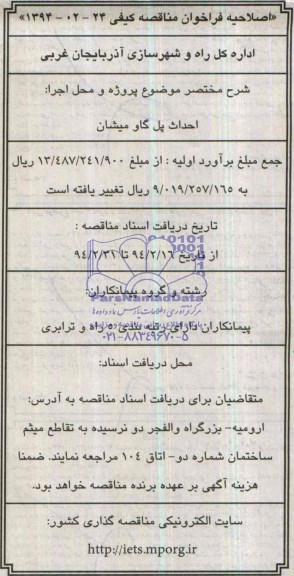 «اصلاحیه فراخوان مناقصه کیفی ۲۴ - ۰۲ - ۱۳۹۴»
اداره کل راه و شهرسازی آذربایجان غربی
شرح مختصر موضوع پروژه و محل اجرا:
احداث پل گاو میشان
جمع مبلغ برآورد اولیه : از مبلغ ۱۳/۴۸۷/۲۴۱/۹۰۰ ریال
به ۹/۰۱۹/۲۵۷/۱۶۵ ریال تغییر یافته است
تاریخ دریافت اسناد مناقصه :
از تاریخ ۹۴/۲/۱۶ تا ۹۴/۲/۳۱
رشته و گروه پیمانکاران:
ParsNamadData
پیمانکاران دارای رتبه بندی ۵ راه و ترابری
۰۲۱-۸۸۳۴۹۶۷۰-۵
محل دریافت اسناد:
متقاضیان برای دریافت اسناد مناقصه به آدرس:
ارومیه- بزرگراه والفجر دو نرسیده به تقاطع میثم
ساختمان شماره دو- اتاق ۱۰۴ مراجعه نمایند. ضمنا
هزینه آگهی بر عهده برنده مناقصه خواهد بود.
سایت الکترونیکی مناقصه گذاری کشور:
http://iets.mporg.ir